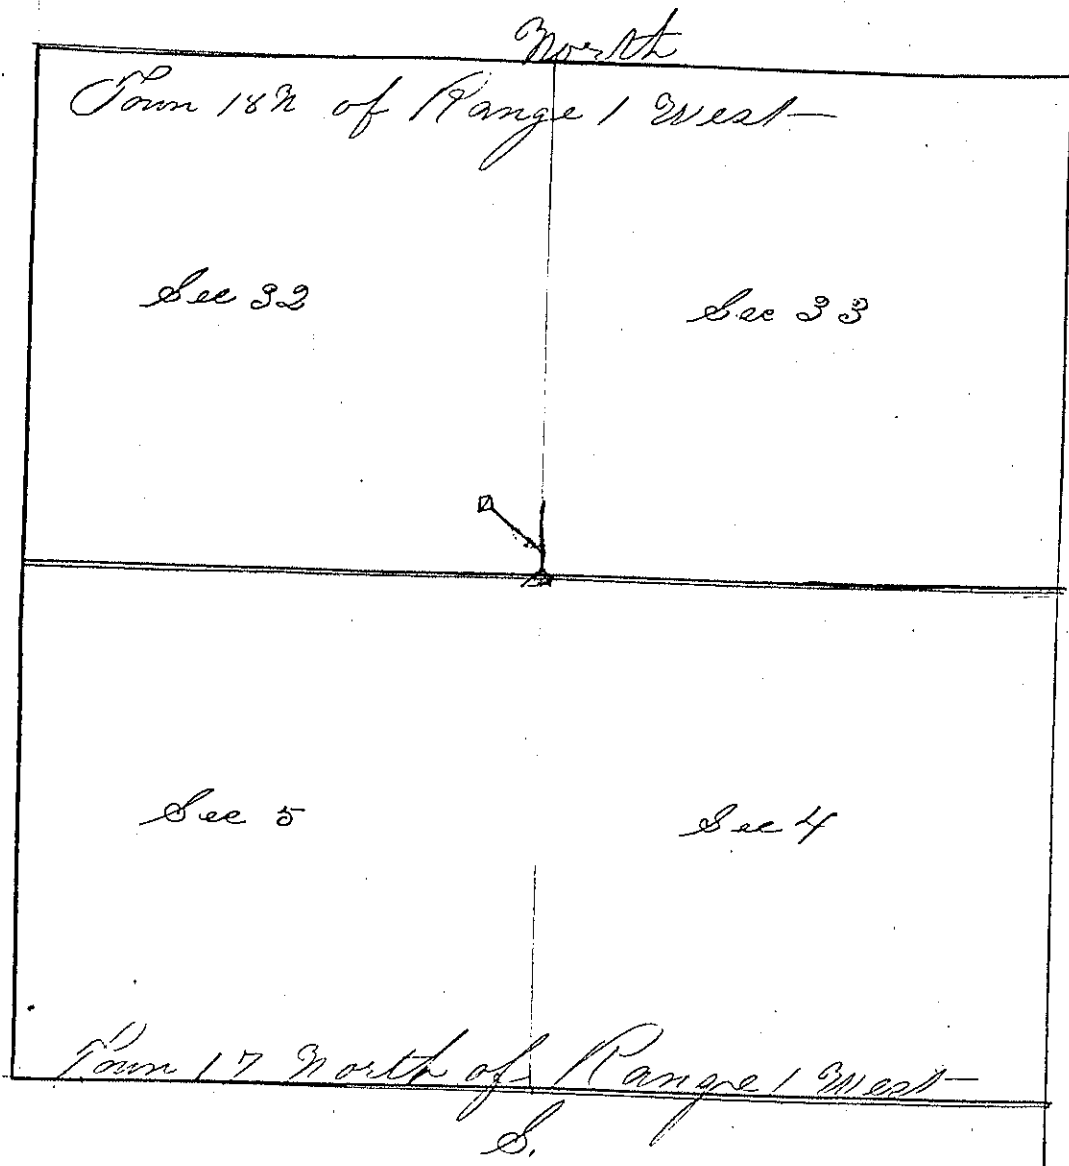 North
Town 18N of Range 1 West
Sec 32
Sec 33
Sec 5
Sec 4
Town 17 North of Range 1 West
S.